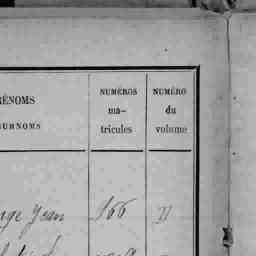 RÉNOMS
SURNOMS
NUMÉROS
ma-
tricules
NUMÉRO
du
volume
Jean 866 II